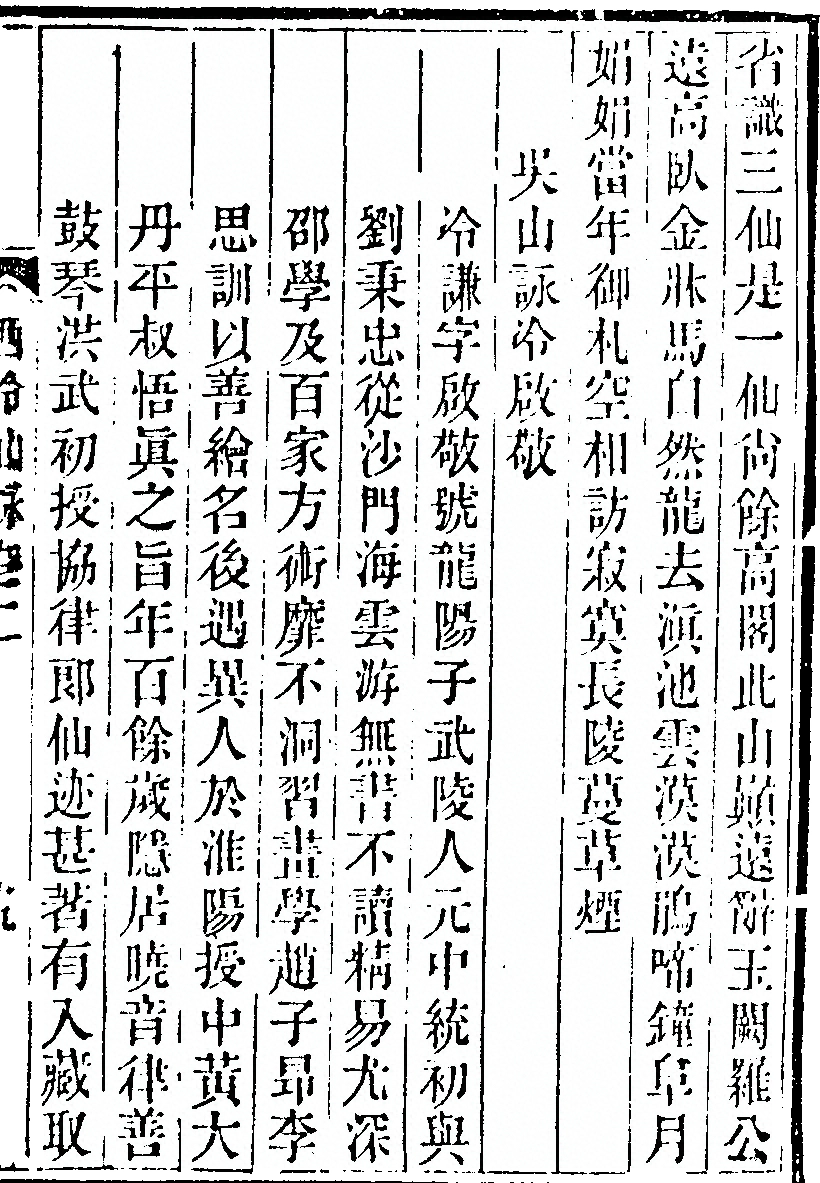 省識三仙是一仙尙餘高閣此山巔遠辭玉闕羅公
遠高臥金牀馬自然龍去滇池雲漠漠鵑啼鐘阜月
娟娟當年御札空相訪寂寞長陵蔓草煙
吳山詠冷啟敬
冷謙字啟敬號龍陽子武陵人元中統初與
劉秉忠從沙門海雲游無書不讀精易尤深
邵學及百家方術靡不洞習畫學趙子昂李
思訓以善繪名後遇異人於淮陽授中黃大
丹平叔悟眞之旨年百餘歲隱居曉音律善
鼓琴洪武初授協律郎仙迹甚著有入藏取
西泠仙詠卷二